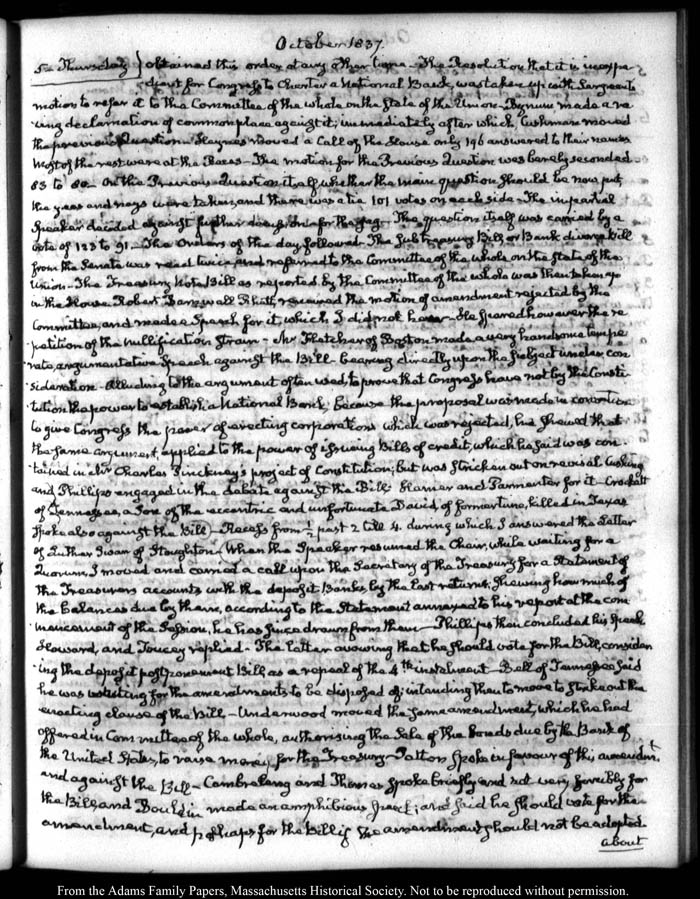 October 1837.
5. Thursday } obtained this order at any other time. The Resolution that it is inexpe-
dient for Congress to Charter a National Bank, was taken up with Sergeant's
motion to refer it to the Committee of the whole on the State of the Union. Bynum made a
declamation of commonplace against it; immediately after which, Cushman moved
the previous Question. Haynes moved a Call of the House only 196 answered to their names
Most of the rest were at the Races. The motion for the Previous Question was barely seconded
83 to 80. On the Previous Question itself whether the main question should be now put,
the yeas and nays were taken, and there was a tie 101 votes on each side. The impartial
Speaker decided against further for the gag. The question itself was carried by a
vote of 123 to 91. The Orders of the day followed. The Sub treasury Bill, or Bank divorce bill
from the Senate was read twice, and referred to the Committee of the whole on the State of the
Union. The Treasury Note Bill as reported by the Committee of the whole was then taken up
in the House. Robert Barnwall Rhett, renewed the motion of amendment rejected by the
Committee, and made a Speech for it, which I did not hear. He spared however the re-
petition of the nullification strain. Mr Fletcher of Boston made a very handsome tempe-
rate, argumentative Speech against the Bill bearing directly upon the subject under con-
sideration. Alluding to the argument often used, to prove that Congress have not by the Consti-
tution the power to establish a National Bank, because the proposal was made in convention
to give Congress the power of erecting corporations which was rejected, he shewed that
the same argument, applied to the power of issuing Bills of credit, which he said was con-
tained in Mr Charles Pinckney's project of Constitution, but was stricken out on revisal. Cushing
and Phillips engaged in the debate against the Bill; Hamer and Parmenter for it. Crockett
of Tennessee, a Son of the eccentric and unfortunate David, of former time, killed in Texas
spoke also against the Bill. Recess from ½ past 2 till 4. during which I answered the Letter
of Luther Swan of Stoughton. When the Speaker resumed the Chair, while waiting for a
Quorum, I moved and carried a call upon the Secretary of the Treasury for a Statement of
the Treasurer's accounts with the deposit Banks, by the last returns, shewing how much of
the balances due by them, according to the Statement annexed to his report at the com-
mencement of the Session, he has since drawn from them. Phillips then concluded his Speech
Howard, and Toucey replied. The latter avowing that he should vote for the Bill, consider-
ing the deposit postponement Bill, as a repeal of the 4th instalment. Bell of Tennessee said
he was waiting for the amendments to be disposed of; intending then to move to strike out the
enacting clause of the Bill. Underwood moved the same amendment, which he had
offered in Committee of the whole, authorising the Sale of the Bonds due by the Bank of
the United States, to raise money for the Treasury. Patton spoke in favour of this amendmt
and against the Bill. Cambreleng and Thomas spoke briefly and not very forcibly for
the Bill, and Bouldin made an amphibious Speech; and said he should vote for the
amendment, and perhaps for the Bill if the amendment should not be adopted
about
From the Adams Family Papers, Massachusetts Historical Society. Not to be reproduced without permission.